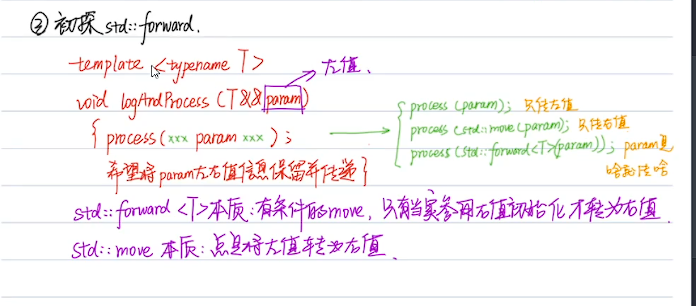 ③ 初探 std::forward.
template <typename T>
void logAndProcess (T&& param) → 左值.
{ process(xxx param xxx);
希望将param左右值信息保留并传递 }
process (param); 只传左值
process (std::move(param); 只传右值
process (std::forward<T>(param)); param是
啥就传啥
std::forward <T>本质:有条件的move, 只有当实参用右值初始化才转为右值.
std::move 本质: 总是将左值转为右值.